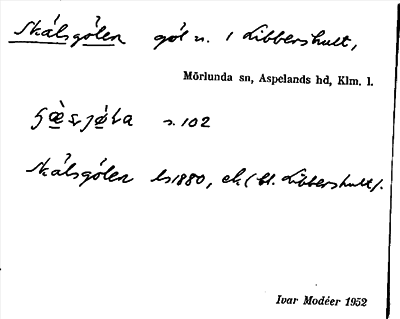 Skálsgólen gól n. / Libbershult,
Mörlunda sn, Aspelands hd, Klm. l.
s. 102
Skálsgólen ls 1880, ek (bl. Libbershult).
Ivar Modéer 1952